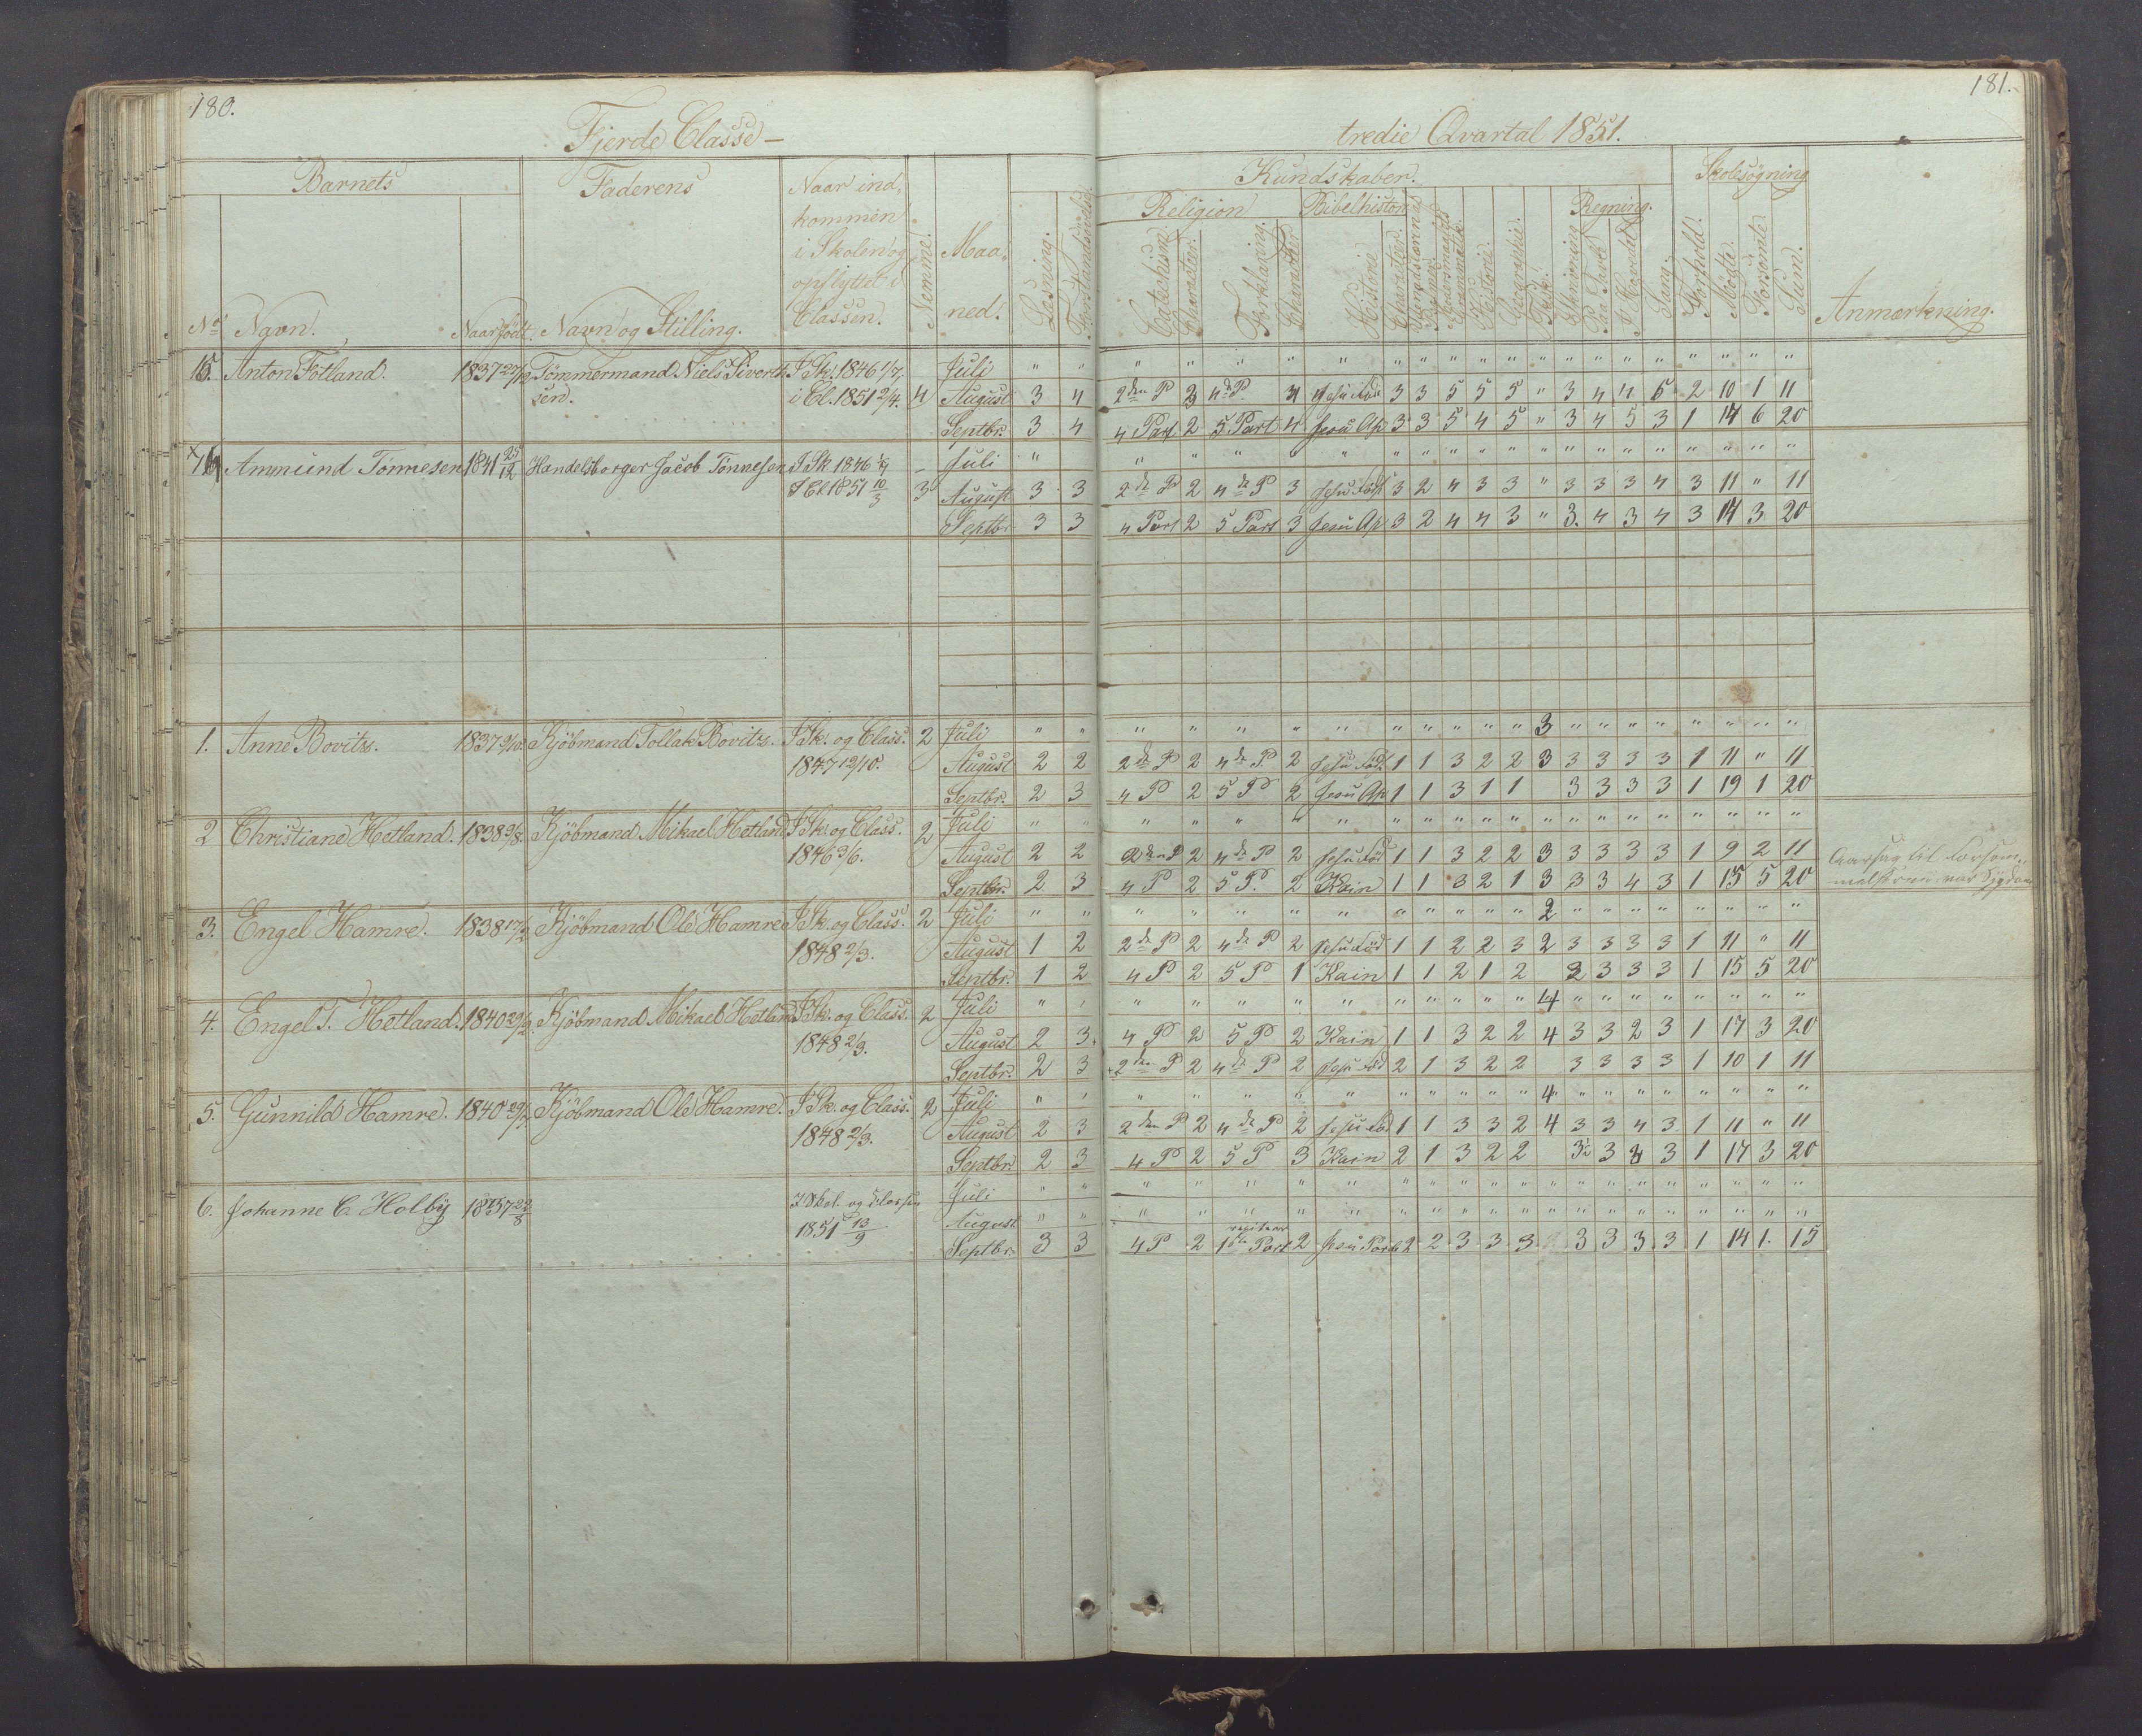 180.
181.
Fjerde Classe –
tredie Qvartal 1851.
Barnets
Faderens
Naar ind-
kommen
i Skolen og
opflyttet i
Classen.
Nemme.
Maa-
ned.
Kundskaber.
Skolesøgning
Læsning.
Forstandsøvelse.
Religion
Bibelhistorie
Regning.
Catechism.
Character.
Forklaring.
Character.
Historie
Character.
Historie.
Geographie.
Skrivning
Paa Tavle
I Hovedet
Sang.
Forhold.
Mødte.
Forsømte.
Sum.
Anmærkning.
No
Navn.
Naar født.
Navn og Stilling.
15. Anton Fotland. 1837 27/12 Tømmermand Niels Sivert- I Sk. 1846 1/7. Juli " " " " " " " " " " " " " " " " " " " " "
sen. i Cl. 1851 2/4. 4 August 3 4 2den P 3 4de P. 4 Jesu Fød 3 3 5 5 5 " 3 4 4 5 2 10 1 11
Septbr. 3 4 4 Part 2 5 Part 4 Jesu Op 3 3 5 4 5 " 3 4 5 3 1 14 6 20
x 16 Ammund Tønnesen 1841 25/12 Handelsborger Jacob Tønnesen I Sk. 1846 Juli " " " " " " " " " " " " " " " " " " " "
I Cl 1851 10/3 3 August 3 3 2de P 2 4de P 3 Jesu Fød 3 2 4 3 3 " 3 3 3 4 3 11 " 11
Septbr. 3 3 4 Part 2 5 Part 3 Jesu Op 3 2 4 4 3 " 3. 4 3 4 3 14 3 20
1. Anne Bovitz. 1837 9/10 Kjøbmand Tollak Bovitz. I Sk. og Class. 2 Juli " " " " " " " " " " " " 3 " " " " " " " "
1847 12/10. August 2 2 2de P 2 4de P. 2 Jesu Fød. 1 1 3 2 2 3 3 3 3 3 1 11 " 11
Septbr. 2 3 4 P 2 5 P 2 Jesu Op 1 1 3 1 1 3 3 3 3 1 19 1 20
2 Christiane Hetland. 1838 9/8. Kjøbmand Mikael Hetland I Sk. og Class. 2 Juli " " " " " " " " " " " " " " " " " " " " "
1846 3/6. August 2 2 2den P 2 4de P 2 Jesu Fød 1 1 3 2 2 3 3 3 3 3 1 9 2 11 Aarsag til Forsøm-
Septbr. 2 3 4 P 2 5 P. 2 Kain 1 1 3 2 1 3 3 3 4 3 1 15 5 20 melserne var Sygdom
3. Engel Hamre. 1838 17/2 Kjøbmand Ole Hamre I Sk. og Class. 2 Juli " " " " " " " " " " " " 2 " " " " " " " "
1848 2/3. August 1 2 2de P 2 4de P 2 Jesu Fød 1 1 2 2 3 2 3 3 3 3 1 11 " 11
Septbr. 1 2 4 P 2 5 P 1 Kain 1 1 2 1 2 2 3 3 3 1 15 5 20
4. Engel T. Hetland. 1840 29/2 Kjøbmand Mikael Hetland I Sk. og Class. 2 Juli " " " " " " " " " " " " 4 " " " " " " " "
1848 2/3. August 2 3. 4 P 2 5 P 2 Kain 1 1 3 2 2 4 3 3 2 3 1 17 3 20
Septbr. 2 3 + 2den P 2 4de P 2 Jesu Fød 2 1 3 2 2 3 3 3 3 1 10 1 11
5. Gunnild Hamre. 1840 29/7 Kjøbmand Ole Hamre. I Sk. og Class. 2 Juli " " " " " " " " " " " " 4 " " " " " " " "
1848 2/3. August 2 3 2den P 2 4de P 2 Jesu Fød 1 1 3 3 2 4 3 3 4 3 1 11 " 11
Septbr. 2 3 4 P 2 5 P 3 Kain 2 1 3 2 2 3½ 3 3 3 1 17 3 20
6. Johanne C. Holby 1837 22/8 I Skol. og Classen Juli " " " " " " " " " " " " " " " " " " " " "
1851 13/9 August " " " " " " " " " " " " " " " " " " " " "
Septbr. 3 3 4 P 2 1ste Part 2 Jesu 2 2 3 3 3 3 3 3 3 1 14 1. 15